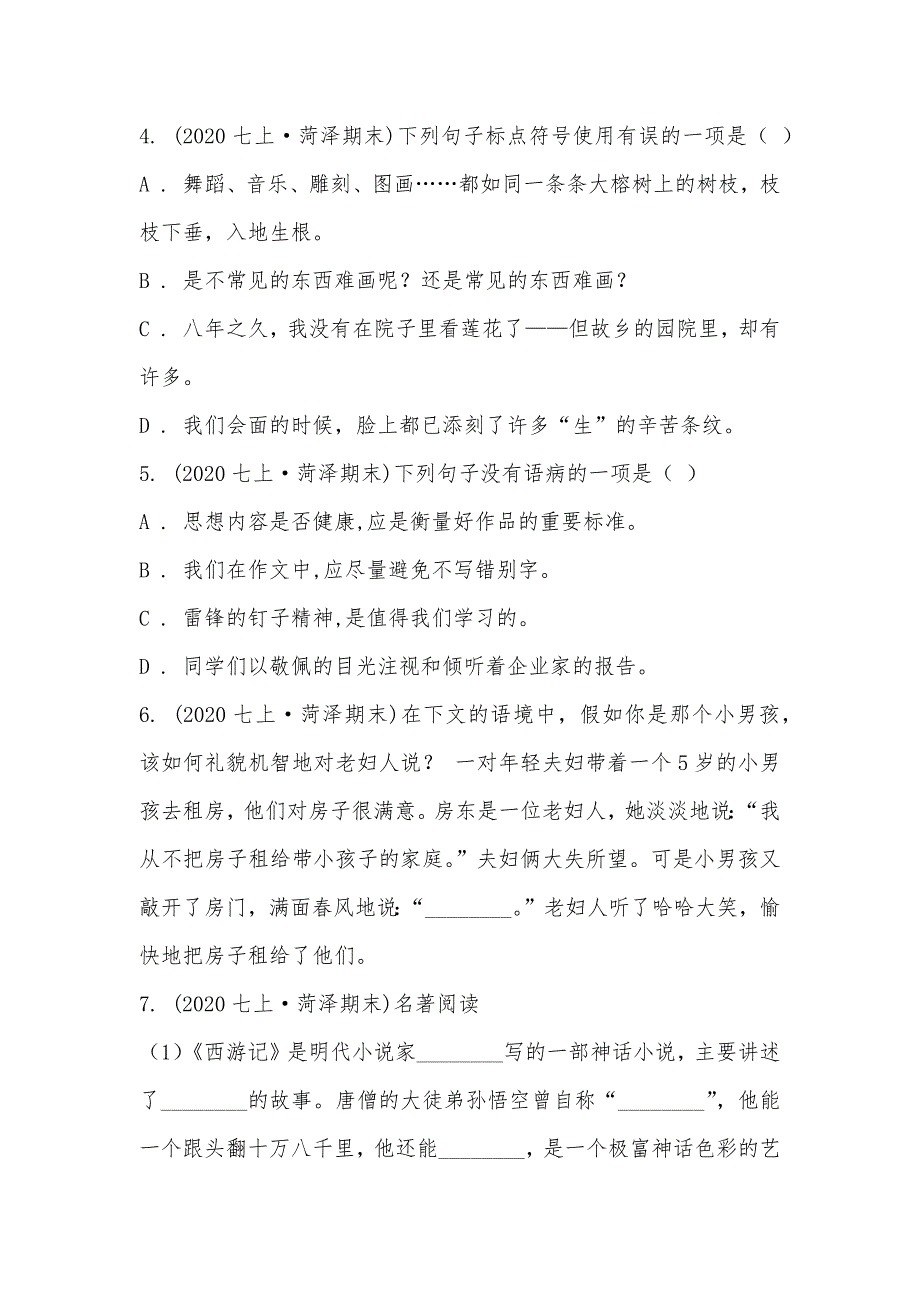 4. (2020七上·菏泽期末)下列句子标点符号使用有误的一项是（ ）
A . 舞蹈、音乐、雕刻、图画……都如同一条条大榕树上的树枝，枝
枝下垂，入地生根。
B . 是不常见的东西难画呢？还是常见的东西难画？
C . 八年之久，我没有在院子里看莲花了——但故乡的园院里，却有
许多。
D . 我们会面的时候，脸上都已添刻了许多“生”的辛苦条纹。
5. (2020七上·菏泽期末)下列句子没有语病的一项是（ ）
A . 思想内容是否健康,应是衡量好作品的重要标准。
B . 我们在作文中,应尽量避免不写错别字。
C . 雷锋的钉子精神,是值得我们学习的。
D . 同学们以敬佩的目光注视和倾听着企业家的报告。
6. (2020七上·菏泽期末)在下文的语境中，假如你是那个小男孩，
该如何礼貌机智地对老妇人说？ 一对年轻夫妇带着一个5岁的小男
孩去租房，他们对房子很满意。房东是一位老妇人，她淡淡地说：“我
从不把房子租给带小孩子的家庭。”夫妇俩大失所望。可是小男孩又
敲开了房门，满面春风地说：“________。”老妇人听了哈哈大笑，愉
快地把房子租给了他们。
7. (2020七上·菏泽期末)名著阅读
（1）《西游记》是明代小说家________写的一部神话小说，主要讲述
了________的故事。唐僧的大徒弟孙悟空曾自称“________”，他能
一个跟头翻十万八千里，他还能________，是一个极富神话色彩的艺